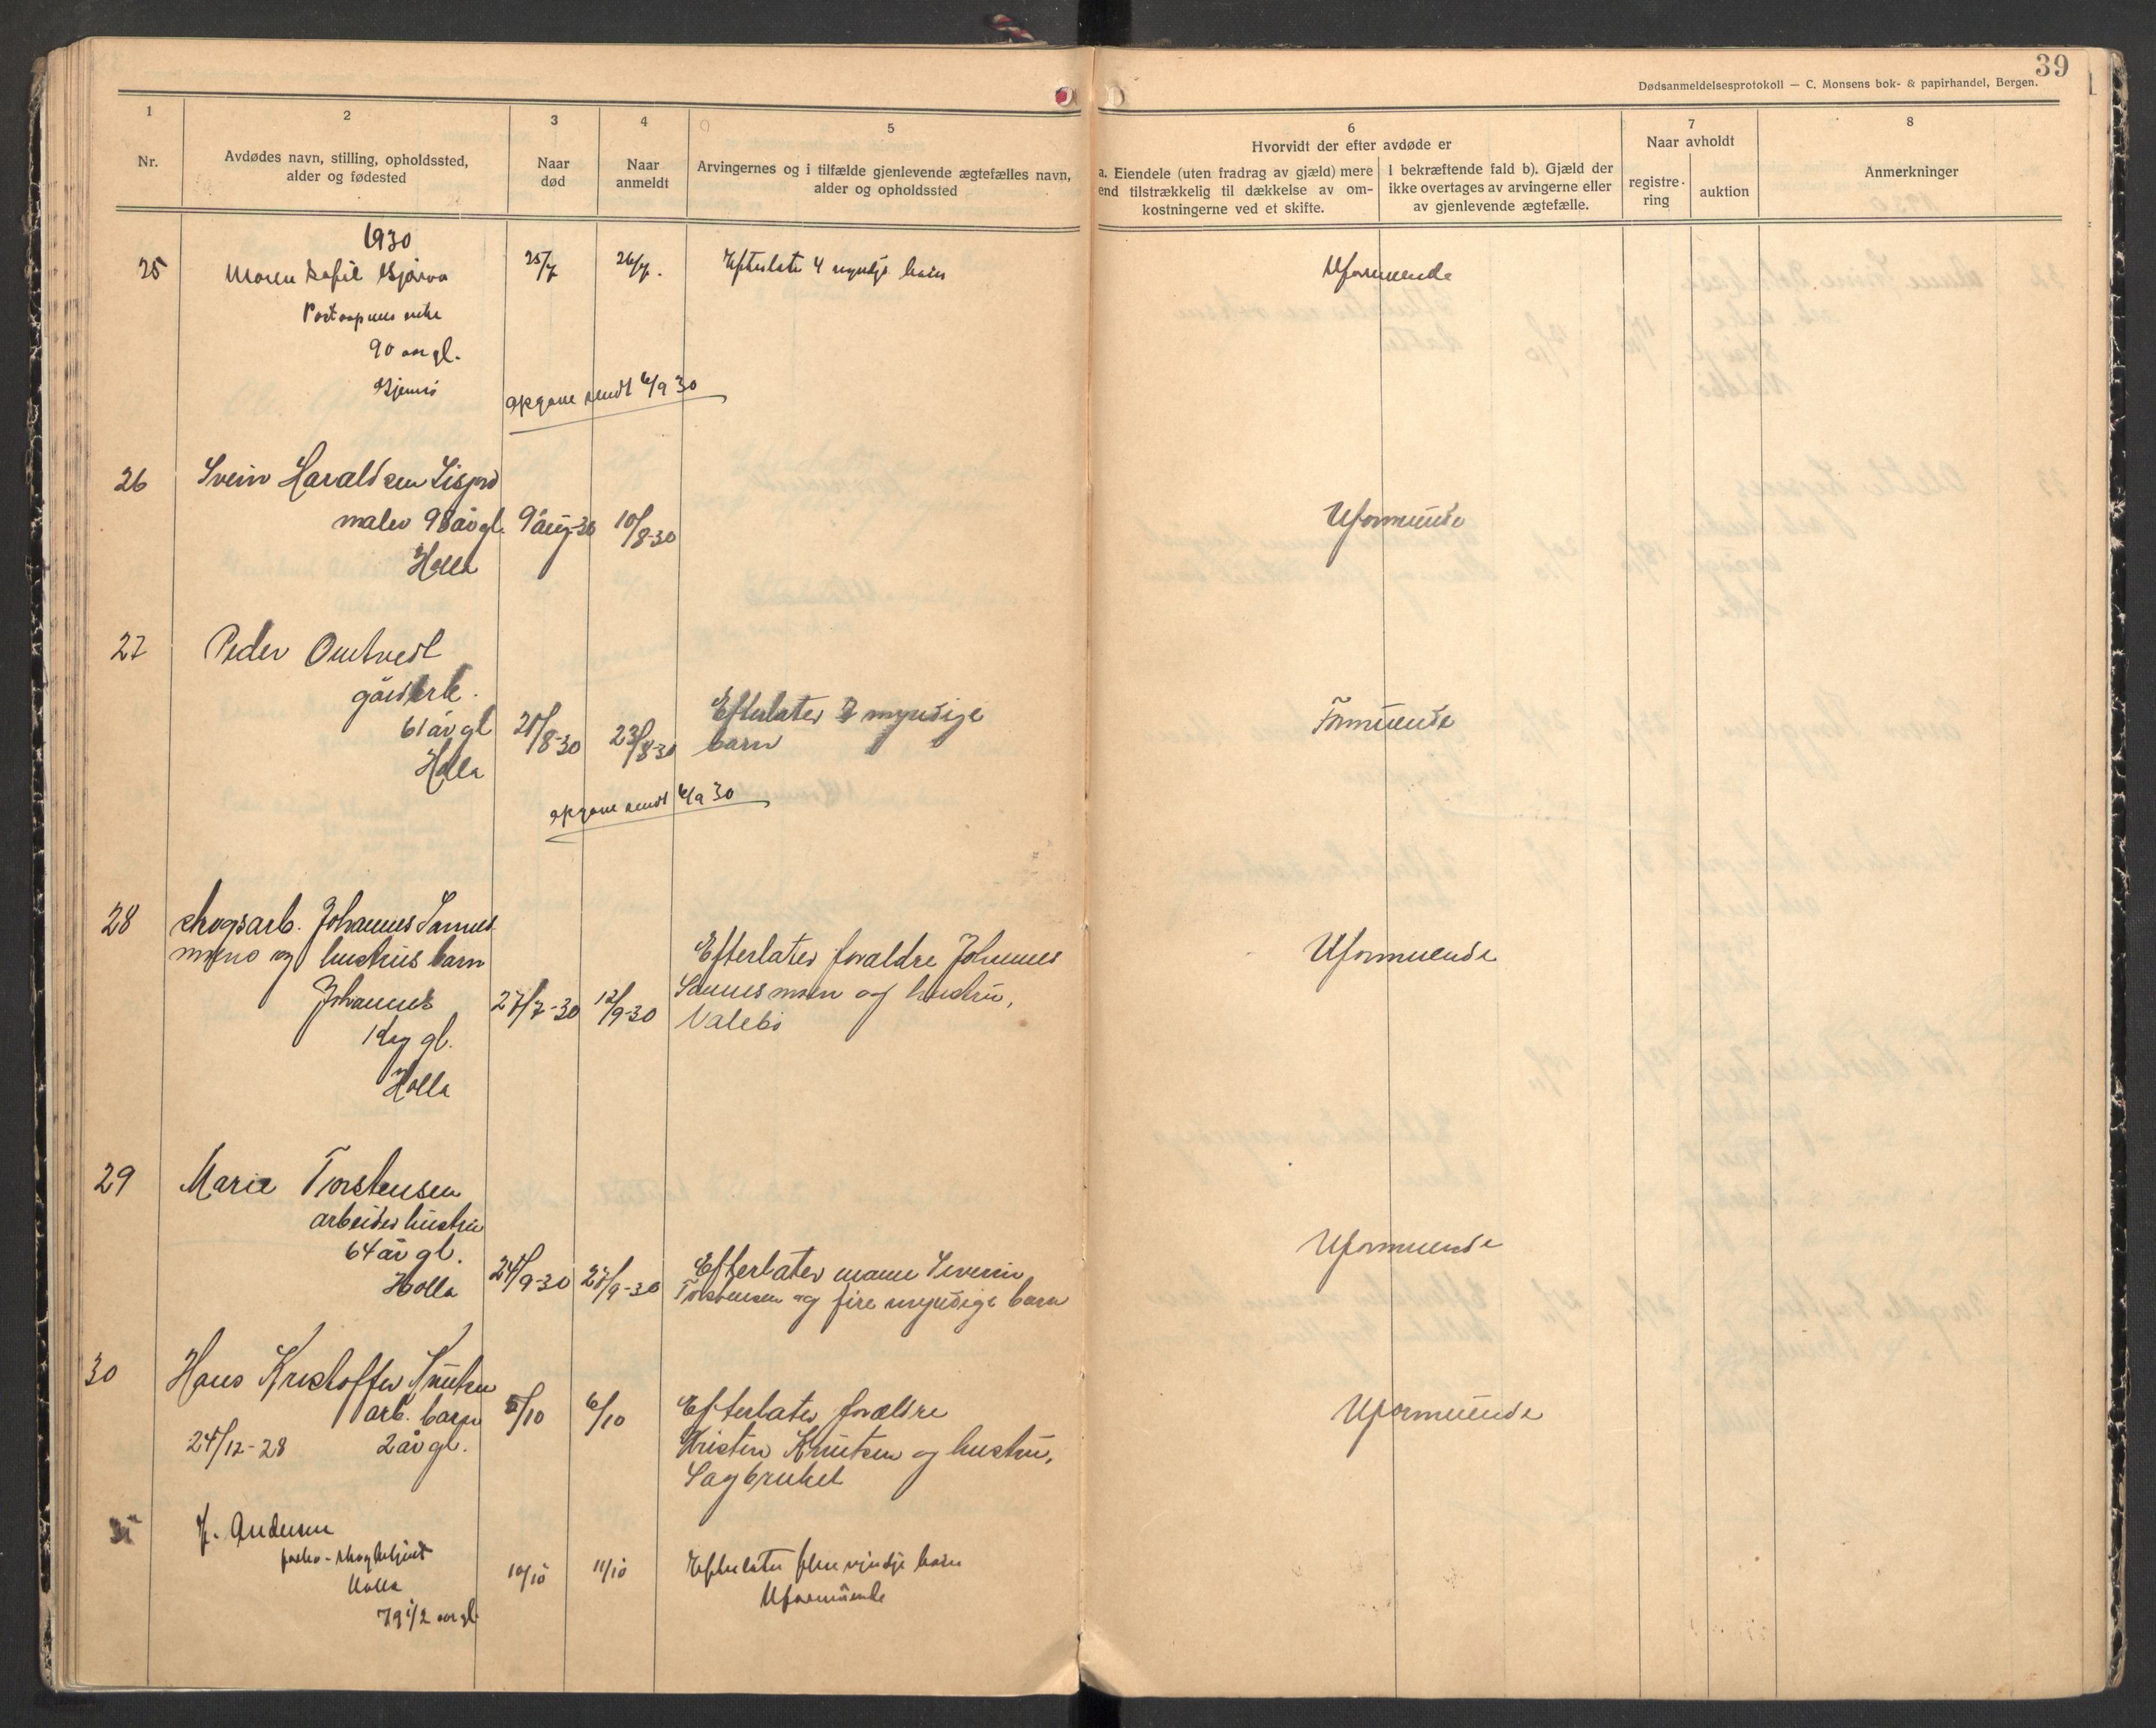 39
Dødsanmeldelsesprotokoll — C. Monsens bok- & papirhandel, Bergen.
1
Nr.
2
Avdødes navn, stilling, opholdssted,
alder og fødested
3
Naar
død
4
Naar
anmeldt
5
Arvingernes og i tilfælde gjenlevende ægtefælles navn,
alder og opholdssted
6
Hvorvidt der efter avdøde er
a. Eiendele (uten fradrag av gjæld) mere
end tilstrækkelig til dækkelse av om-
kostningerne ved et skifte.
I bekræftende fald b). Gjæld der
ikke overtages av arvingerne eller
av gjenlevende ægtefælle.
7
Naar avholdt
registre-
ring
auktion
8
Anmerkninger
1930
25
Maren Sofie
25/7
26/7.
Efterlater 4 myndige barn
Uformuende
enke
90 aar gl.
opgave sendt 6/9 30
26
Svein Haraldsen
maler 98 år gl.
9 aug-30
10/8-30
Uformuende
Holla
27
Peder Omtvedt
gårdbrk.
61 år gl
21/8-30
23/8-30
Efterlater 2 myndige
barn
Formuende
Holla
opgave sendt 6/9 30
28
skogsarb. Johannes Sannes
moen og hustrus barn
Johannes
1 dag gl.
Holla
27/7-30
12/9-30
Efterlater forældre Johannes
Sannesmoen og hustru,
Valebø
Uformuende
29
Marie Torstensen
arbeider hustru
64 år gl.
Holla
24/9-30
27/9-30
Efterlater mann Severin
Torstensen og fire myndige barn
Uformuende
30
Hans Kristoffer Knutsen
arb. barn
24/12-28 2 år gl.
5/10
6/10
Efterlater forældre
Kristen Knutsen og hustru,
Sagbruket
Uformuende
31
Andersen
Holla
79 1/2 aar gl.
10/10
11/10
Efterlater flere myndige barn
Uformuende